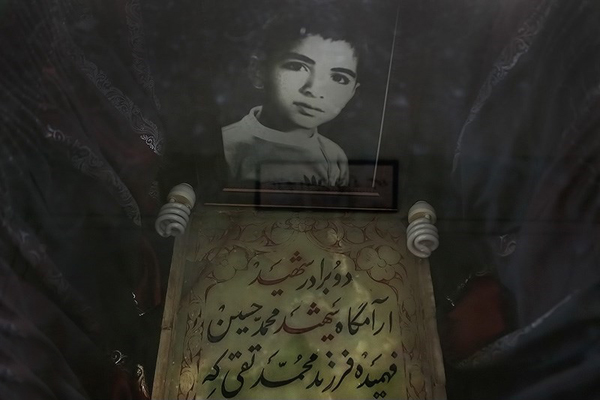 دو برادر شهید
آرامگاه شهید محمد حسین
فهمیده فرزند محمد تقی که